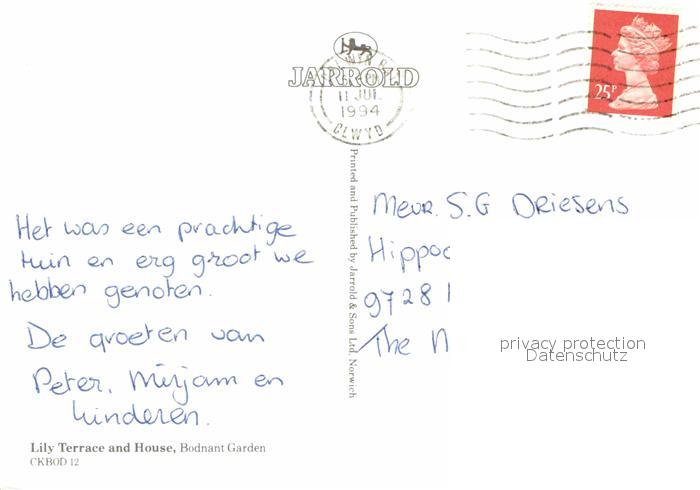 JARROLD
11 JUL
1994
CLWYD
25P
Printed and Published by Jarrold & Sons Ltd. Norwich
Het was een prachtige
tuin en erg groot we
hebben genoten.
De groeten van
Peter, Mirjam en
kinderen.
Mevr. S.G Driesens
Hippoc
9728
The N
privacy protection
Datenschutz
Lily Terrace and House, Bodnant Garden
CKBOD 12